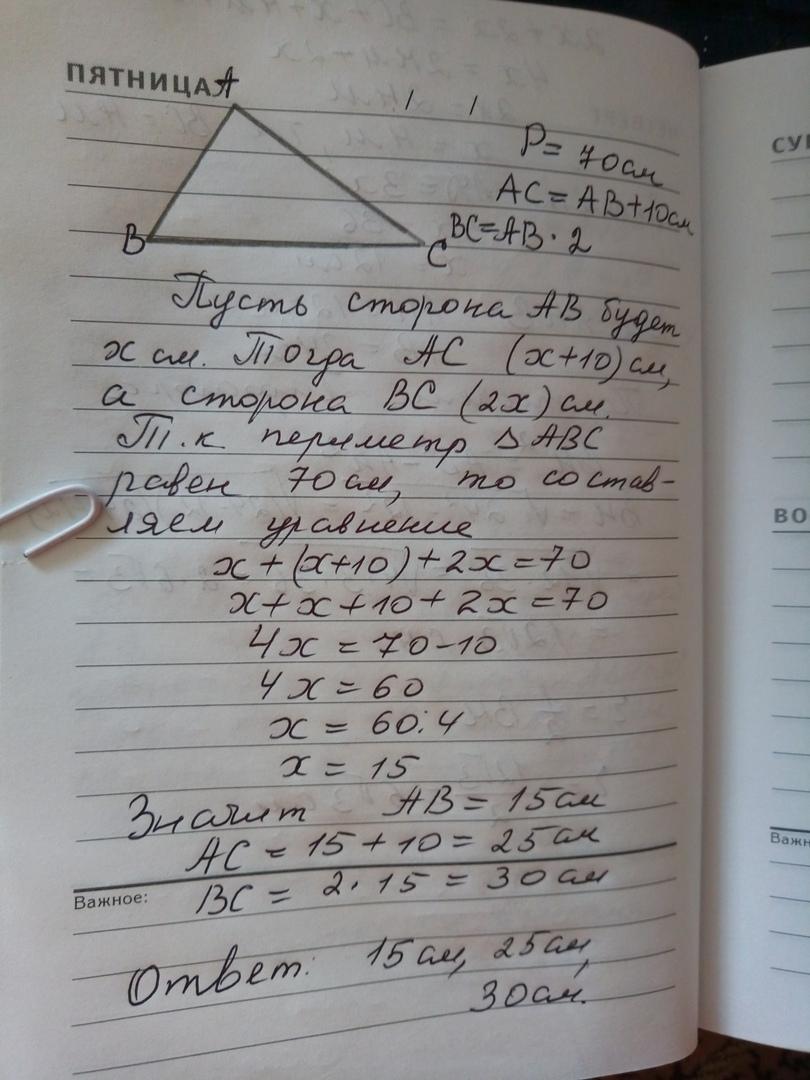 ПЯТНИЦА
A
B
C
P = 70 см
AC = AB + 10 см
BC = AB · 2
Пусть сторона AB будет
x см. Тогда AC (x+10) см,
а сторона BC (2x) см.
Т.к периметр △ABC
равен 70 см, то состав-
ляем уравнение
x + (x+10) + 2x = 70
x + x + 10 + 2x = 70
4x = 70 - 10
4x = 60
x = 60:4
x = 15
Значит AB = 15 см
AC = 15 + 10 = 25 см
Важное:
BC = 2 · 15 = 30 см
Ответ: 15 см, 25 см,
30 см.
ВО